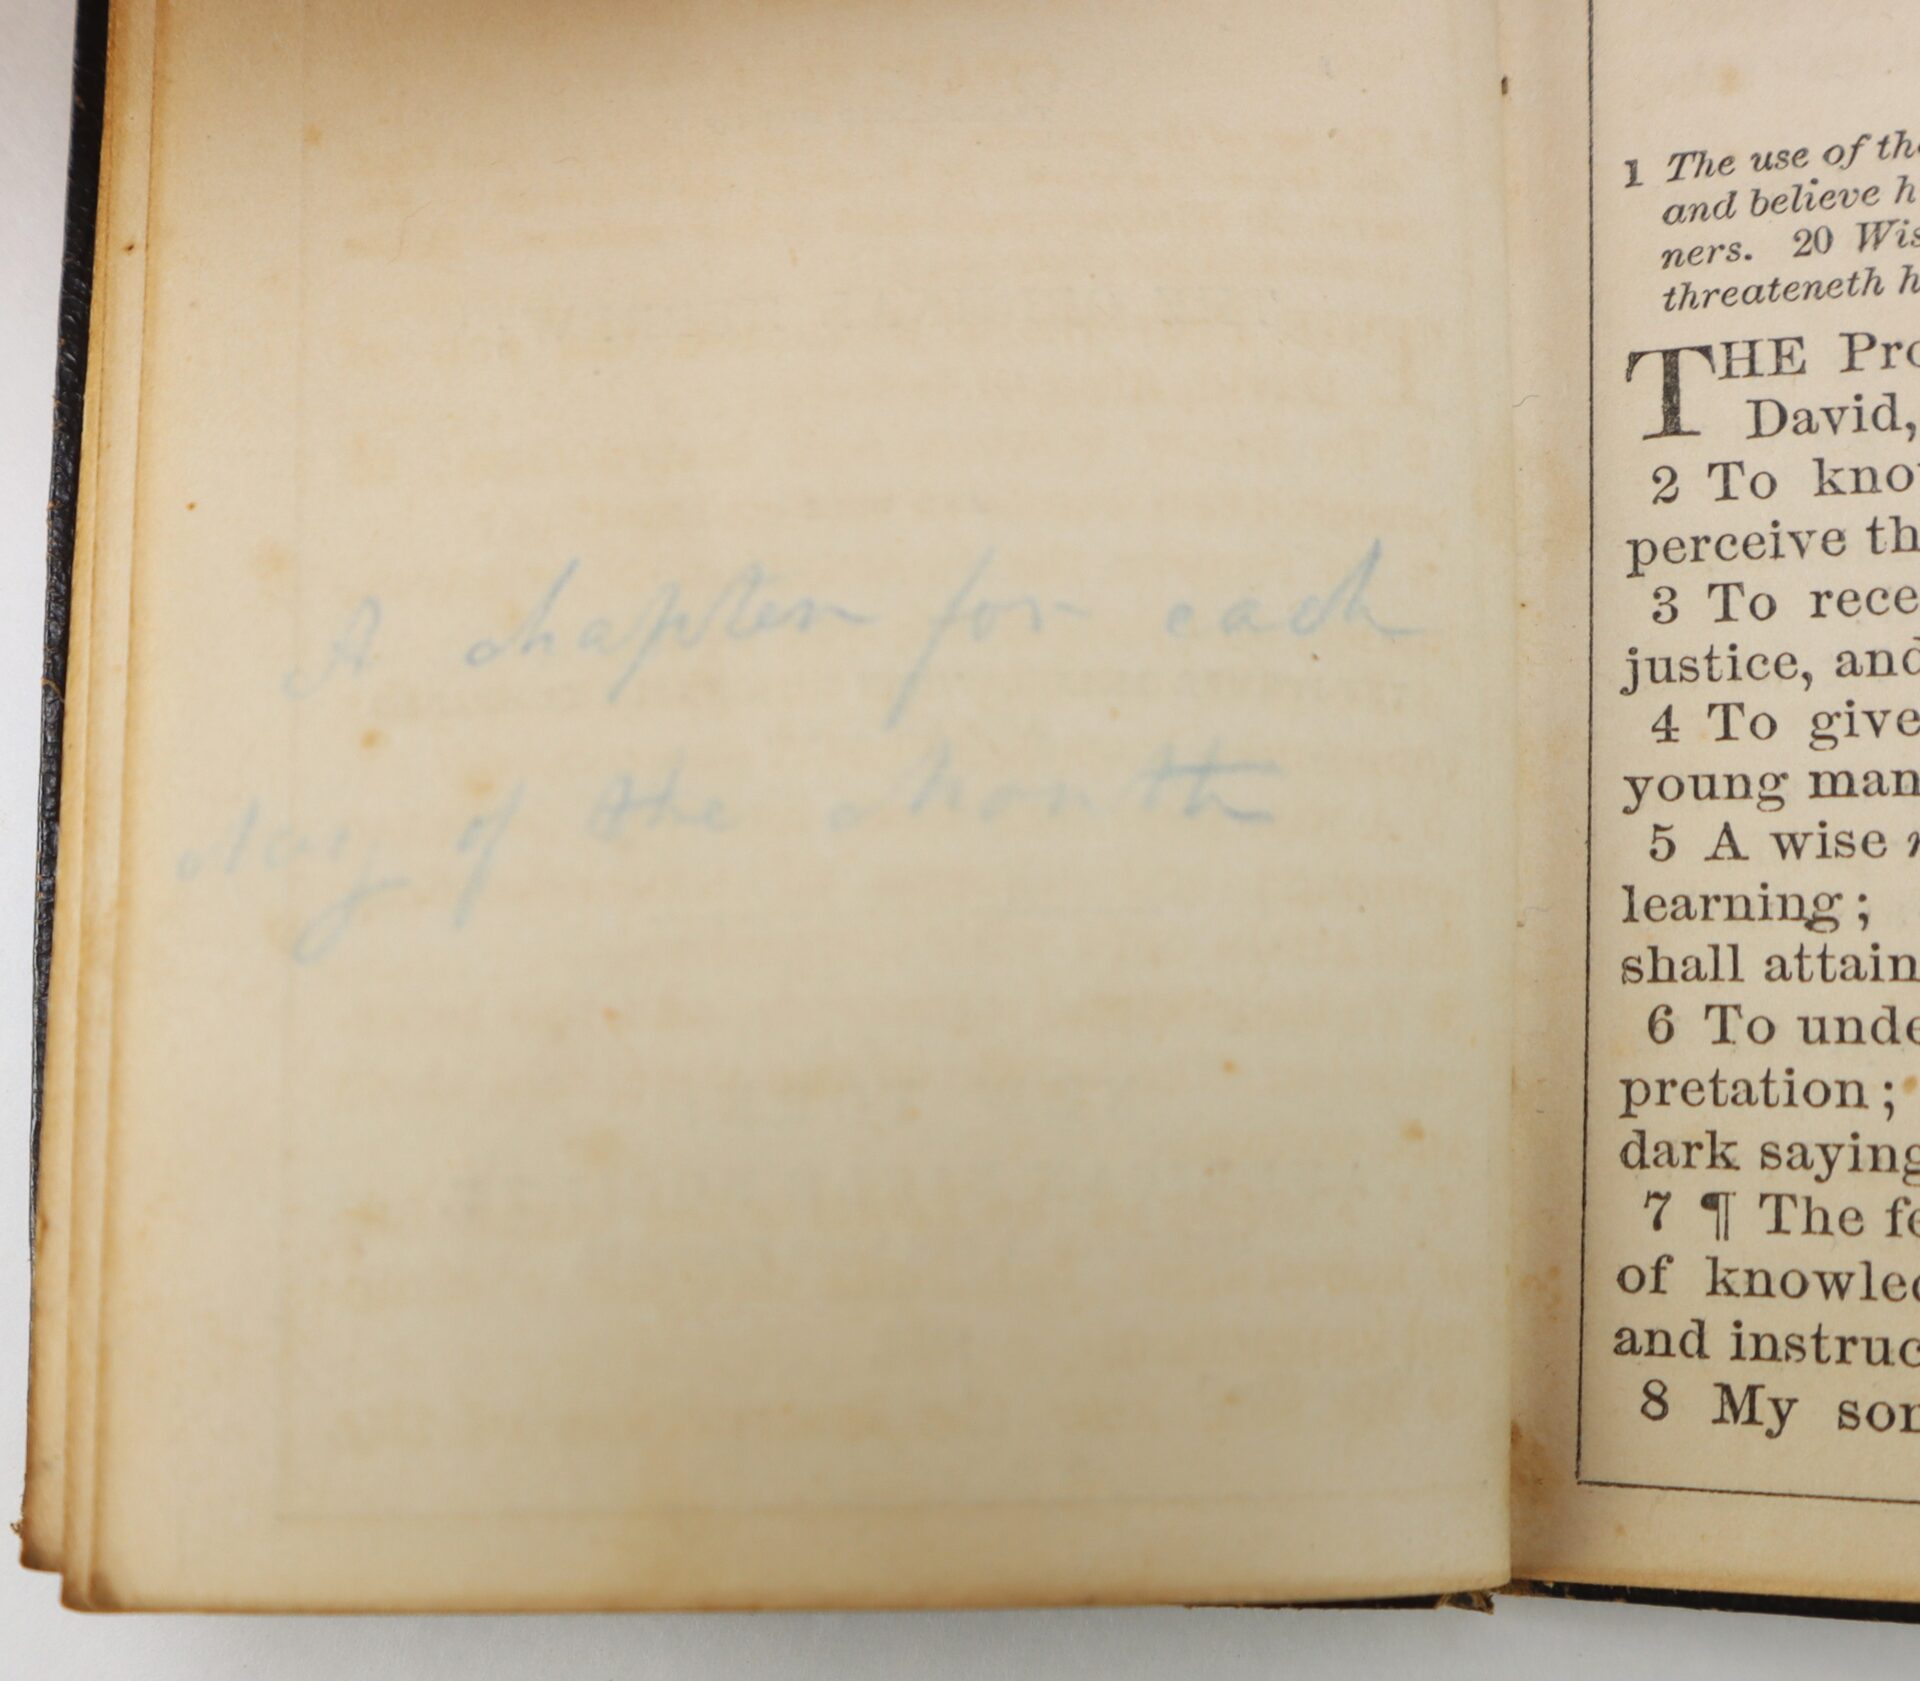 A chapter for each
day of the Month
1 The use of the
and believe h
ners. 20 Wis
threateneth h
THE Pro
David,
2 To kno
perceive th
3 To rece
justice, and
4 To give
young man
5 A wise
learning;
shall attain
6 To unde
pretation;
dark saying
7 ¶ The fe
of knowled
and instruc
8 My son